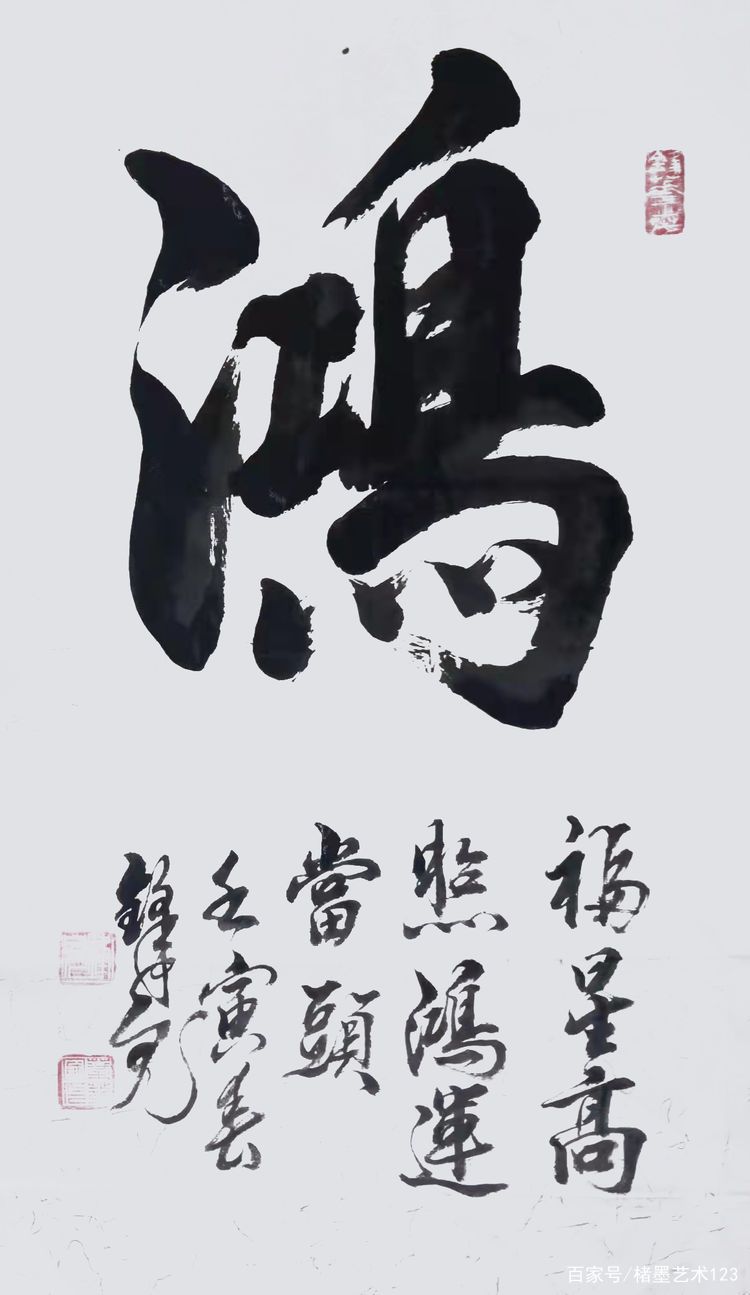 鴻
福星高
照鴻運
當頭
壬寅春
百家号/楮墨艺术123